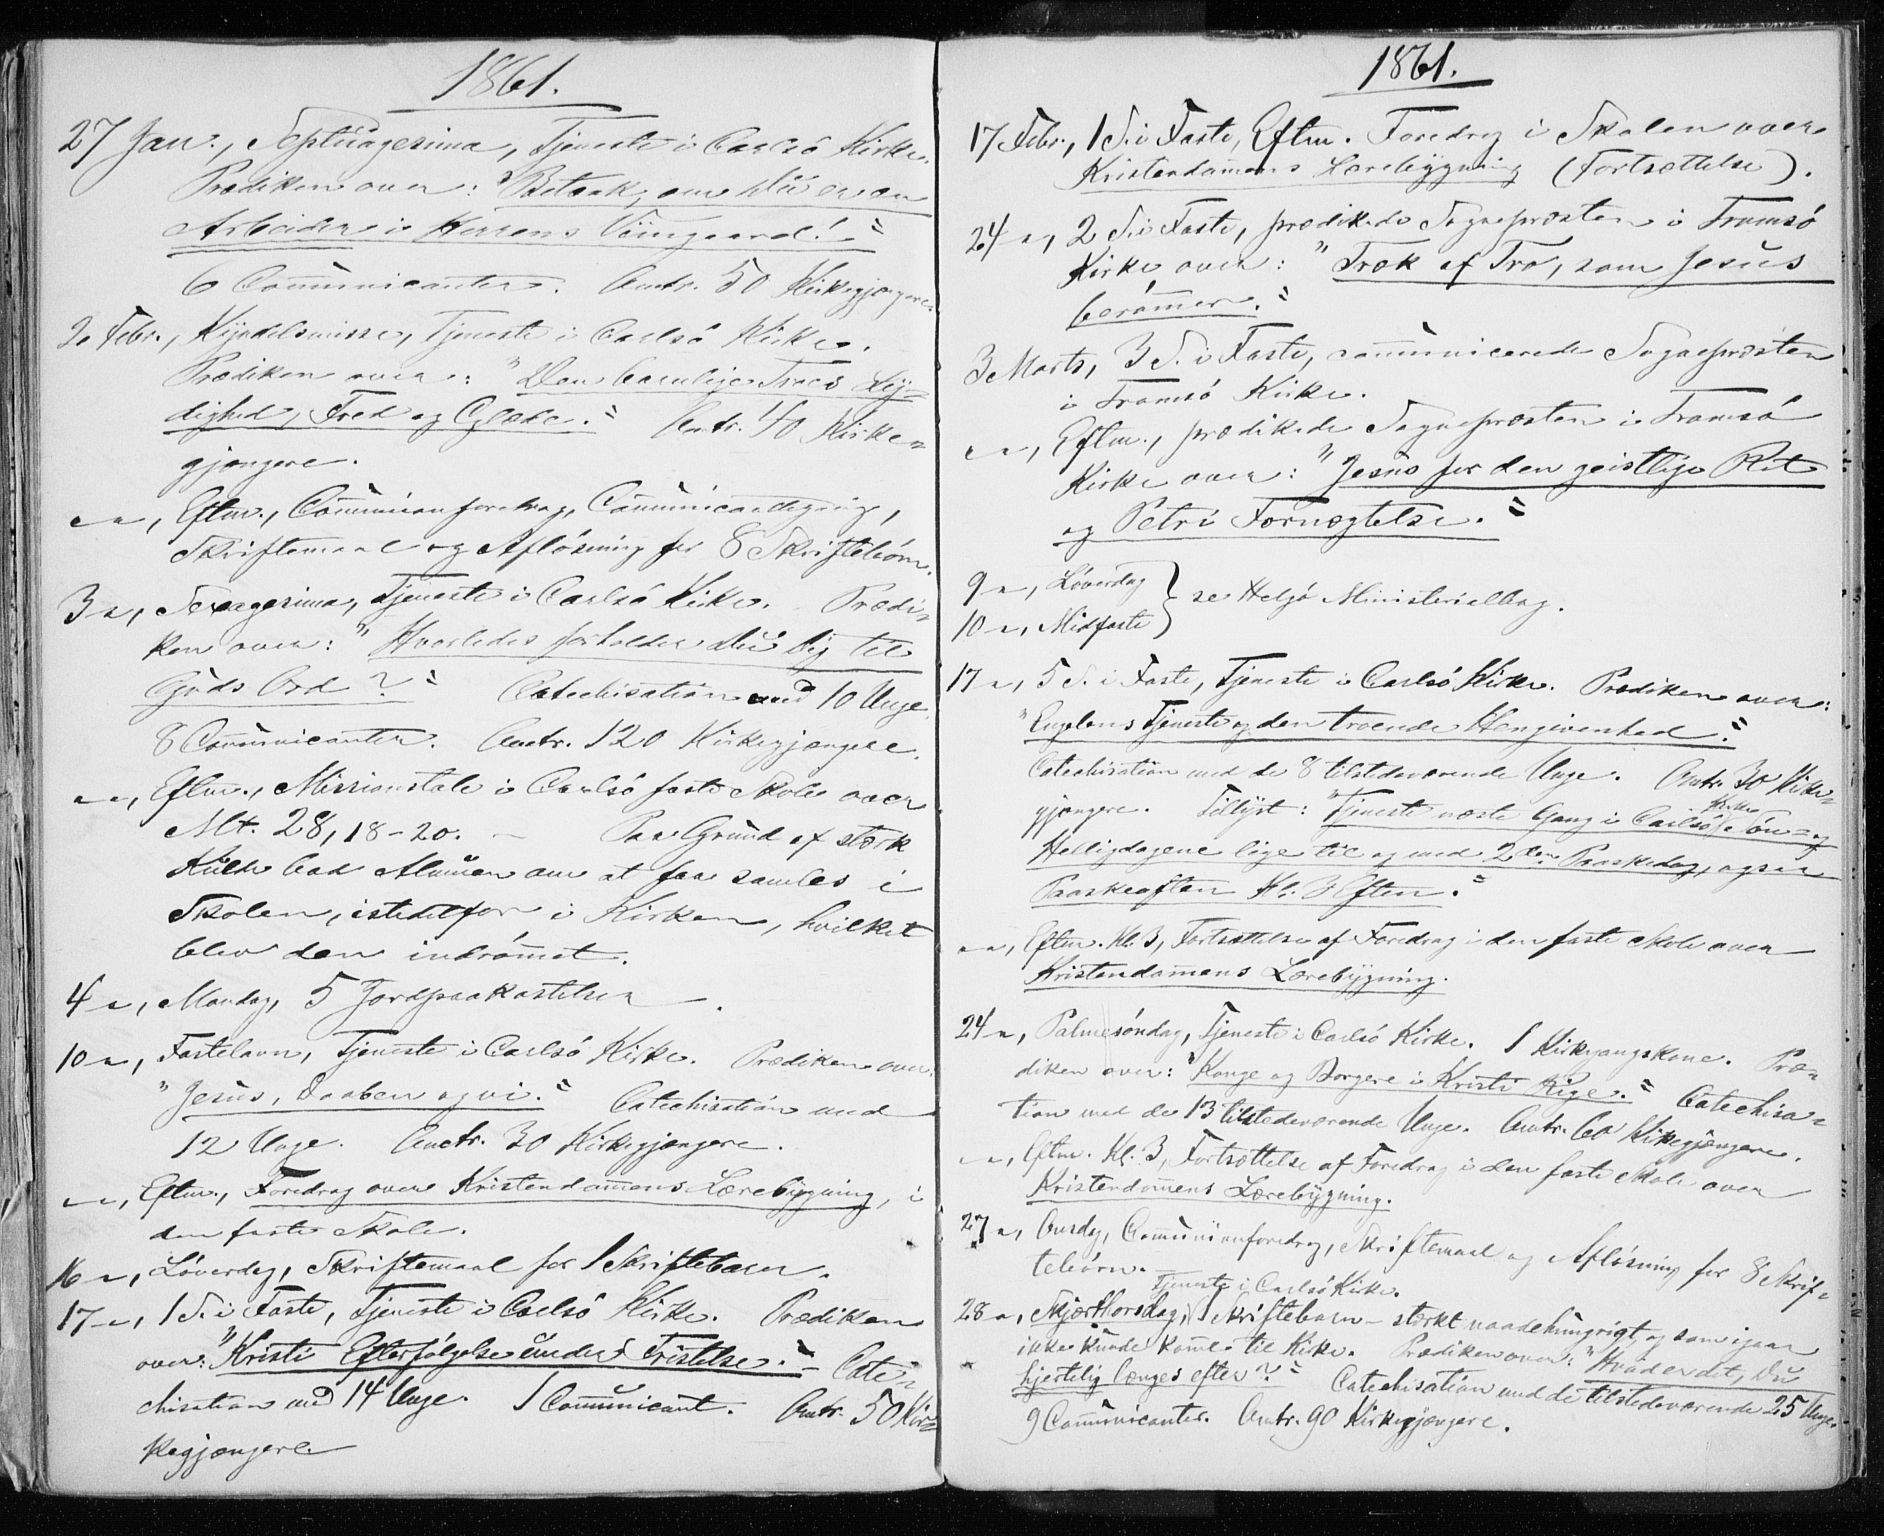 1861.
27 Jan., Septuagesima, Tjeneste i Carlsö Kirke.
Prædiken over: "Betænk, om Du er en
Arbeider i Herrens Viingaard!"
6 Communicanter. Omtr. 50 Kirkegjængere.
2 Febr., Kyndelsmisse, Tjeneste i Carlsö Kirke.
Prædiken over: "Den barnlige Troes Ly-
dighed, Fred og Glæde." Omtr. 40 Kirke-
gjængere.
" ", Eftm., Communionforedrag, Communicantegning,
Skriftemaal og Aflösning for 8 Skriftebörn.
3 ", Sexagesima, Tjeneste i Carlsö Kirke. Prædi-
ken over: "Hvorledes forholder Du Dig til
Guds Ord?" Catechisation med 10 Unge.
8 Communicanter. Omtr. 120 Kirkegjængere.
" ", Eftm., Missionstale i Carlsö faste Skole over
Mt. 28, 18-20. — Paa Grund af stærk
Kulde bad Almuen om at faa samles i
Skolen, istedetfor i Kirken, hvilket
blev den indrömmet.
4 ", Mandag, 5 Jordpaakastelser.
10 ", Fastelavn, Tjeneste i Carlsö Kirke. Prædiken over:
"Jesus, Daaben og vi." Catechisation med
12 Unge. Omtr. 30 Kirkegjængere.
" ", Eftm., Foredrag over Kristendommens Lærebygning, i
den faste Skole.
16 ", Löverdag, Skriftemaal for 1 Skriftebarn.
17 ", 1 S. i Faste, Tjeneste i Carlsö Kirke. Prædiken
over: "Kristi Efterfølgelse under Fristelse." — Cate-
chisation med 14 Unge. 1 Communicant. Omtr. 50 Kir-
kegjængere.
1861.
17 Febr., 1 S. i Faste, Eftm. Foredrag i Skolen over
Kristendommens Lærebygning (Fortsættelse).
24 ", 2 S. i Faste, prædikede Sognepræsten i Tromsö
Kirke over: "Træk af Tro, som Jesus
berömmer."
3 Marts, 3 S. i Faste, communicerede Sognepræsten
i Tromsö Kirke.
" ", Eftm., prædikede Sognepræsten i Tromsö
Kirke over: "Jesus for den geistlige Ret
og Petri Fornægtelse."
9 ", Löverdag
10 ", Midfaste
} se Helgö Ministerialbog.
17 ", 5 S. i Faste, Tjeneste i Carlsö Kirke. Prædiken over:
"Engelens Tjeneste og den troende Hengivenhed."
Catechisation med de 8 tilstedeværende Unge. Omtr. 30 Kirke-
gjængere. Tillyst: "Tjeneste næste Gang i Carlsö Kirke Sön- og
Helligdagene lige til og med 2den Paaskedag, ogsaa
Paaskeaften Kl. 3 Eftm."
" ", Eftm. Kl. 3, Fortsættelse af Foredrag i den faste Skole over
Kristendommens Lærebygning.
24 ", Palmesöndag, Tjeneste i Carlsö Kirke. 1 Kirkgangskone. Præ-
diken over: "Konge og Borgere i Kristi Rige." Catechisa-
tion med de 13 tilstedeværende Unge. Omtr. 60 Kirkegjængere.
" ", Eftm. Kl. 3, Fortsættelse af Foredrag i den faste Skole over
Kristendommens Lærebygning.
27 ", Onsdag, Communionforedrag, Skriftemaal og Aflösning for 8 Skrif-
tebörn.
Tjeneste i Carlsö Kirke.
28 ", Skjærthorsdag, 1 Skriftebarn — stærkt naadehungrigt, og som igaar
ikke kunde komme til Kirke. Prædiken over: "Hvad er det, Du
hjertelig længes efter?" Catechisation med de tilstedeværende 25 Unge.
9 Communicanter. Omtr. 90 Kirkegjængere.